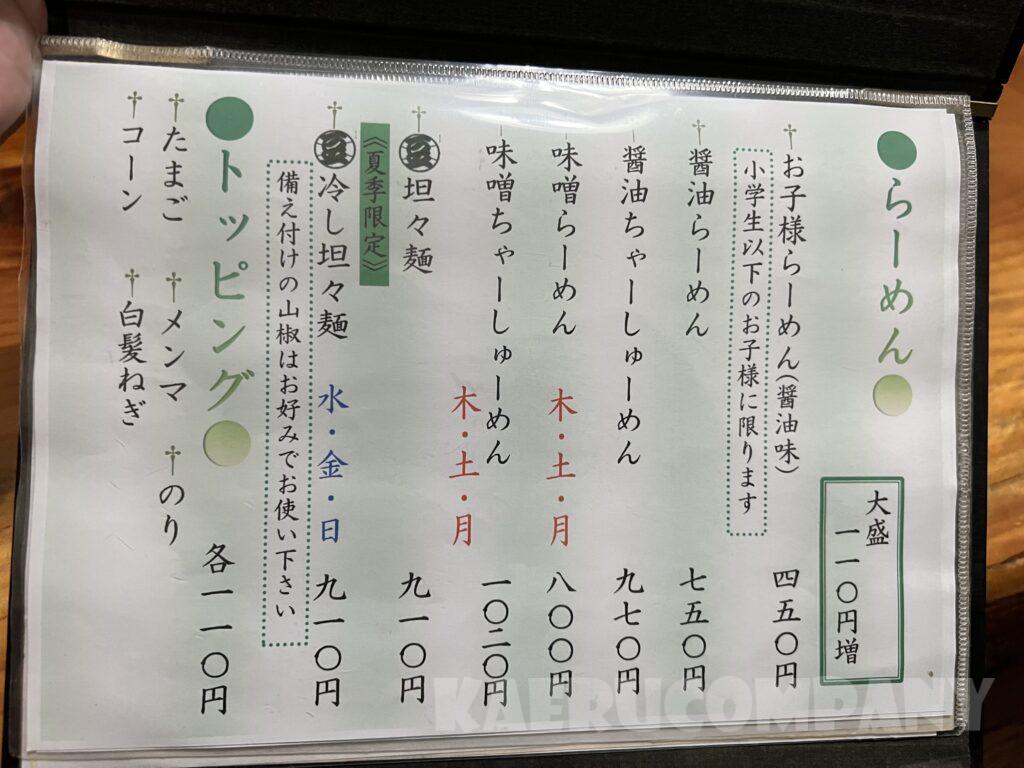 ●らーめん●
大盛
一一〇円増
†お子様らーめん(醤油味) 四五〇円
小学生以下のお子様に限ります
†醤油らーめん 七五〇円
醤油ちゃーしゅーめん 九七〇円
味噌らーめん 木・土・月 八〇〇円
味噌ちゃーしゅーめん 木・土・月 一〇二〇円
†坦々麺 九一〇円
《夏季限定》
†冷し坦々麺 水・金・日 九一〇円
備え付けの山椒はお好みでお使い下さい
●トッピング● 各一一〇円
†たまご †メンマ †のり
†コーン †白髪ねぎ
KAERUCOMPANY